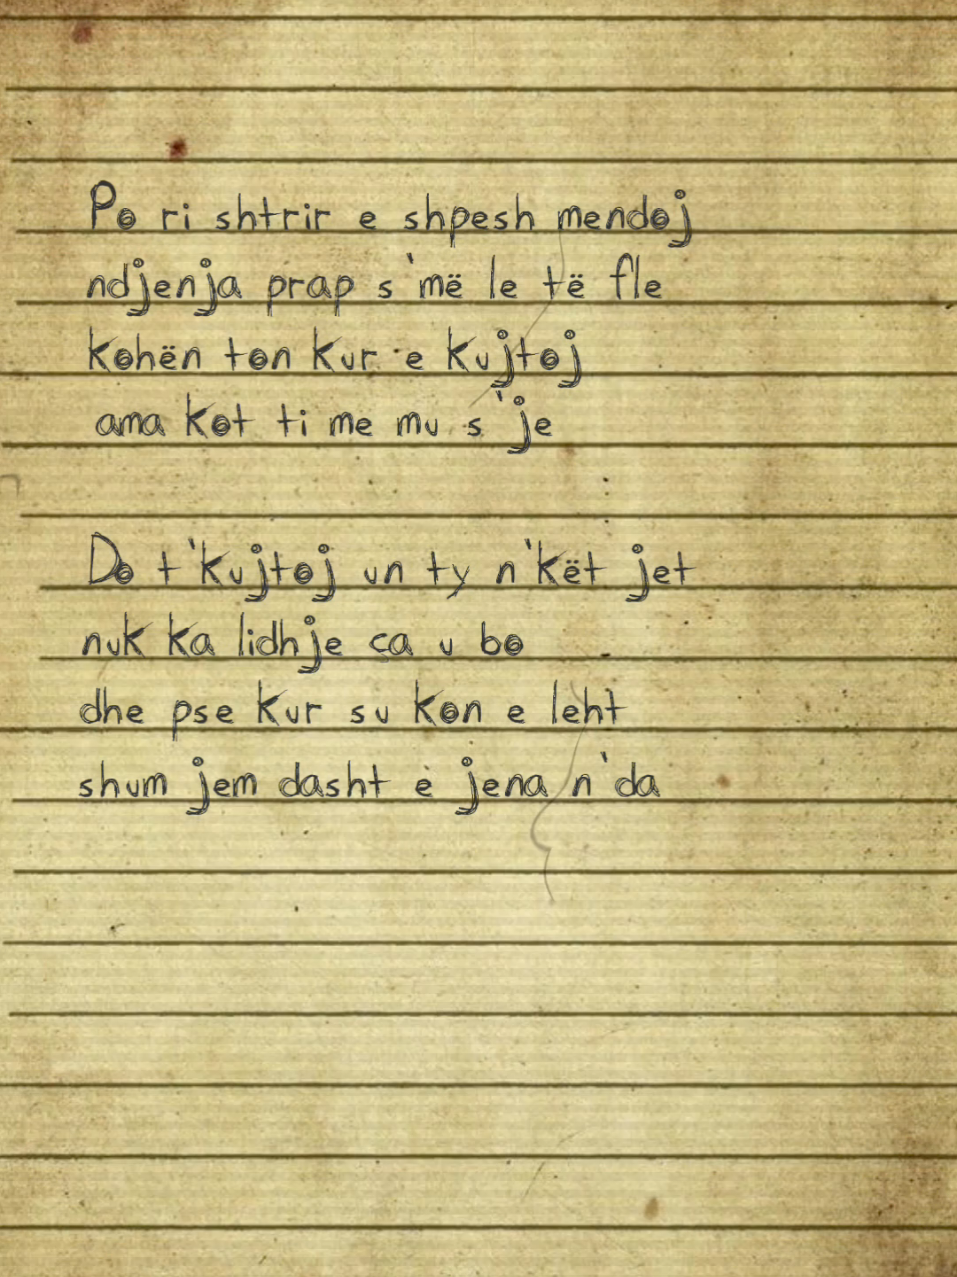 Po ri shtrir e shpesh mendoj
ndjenja prap s'më le të fle
kohën ton kur e kujtoj
ama kot ti me mu s'je
Do t'kujtoj un ty n'kët jet
nuk ka lidhje ca u bo
dhe pse kur su kon e leht
shum jem dasht e jena n'da